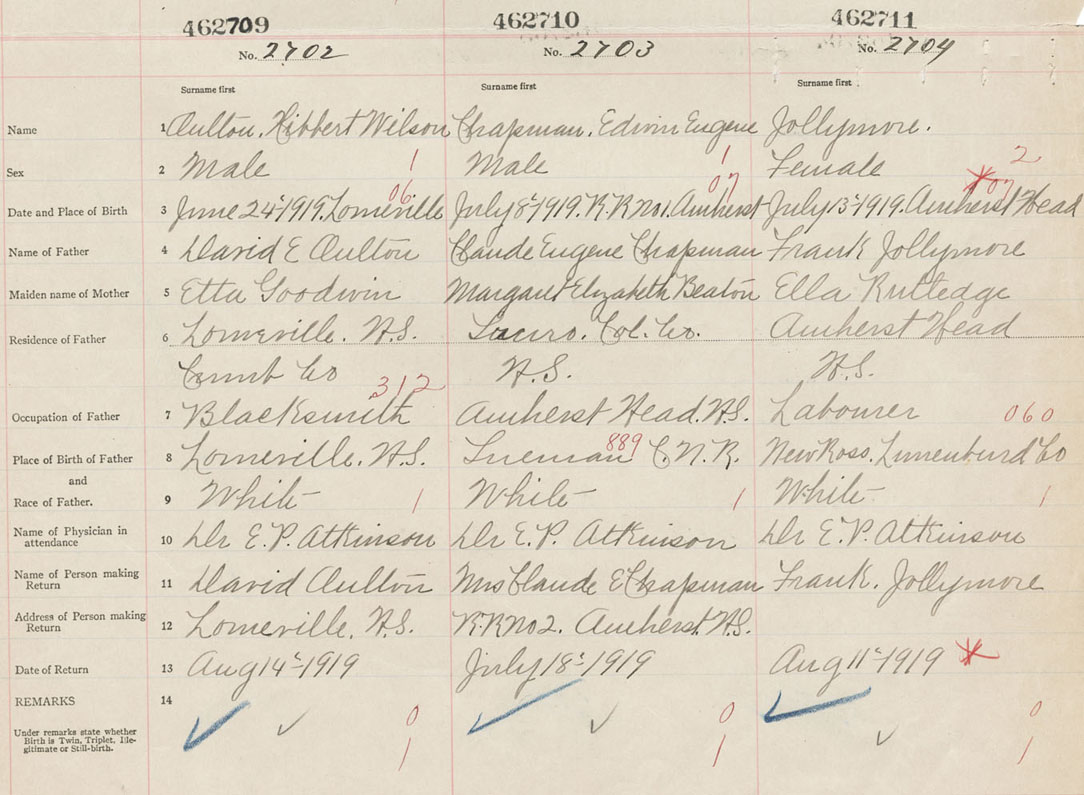 462709 462710 462711
No. 2702 No. 2703 No. 2704
Surname first Surname first Surname first
Name 1 Oulton. Hibbert Wilson Chapman. Edwin Eugene Jollymore.
Sex 2 Male 1 Male 1 Female 2
06 07 07
Date and Place of Birth 3 June 24-1919. Lorneville July 8-1919. R.R No 1. Amherst July 13-1919. Amherst Head
Name of Father 4 David E Oulton Claude Eugene Chapman Frank Jollymore
Maiden name of Mother 5 Etta Goodwin Margaret Elizabeth Beaton Ella Rutledge
Residence of Father 6 Lorneville. N.S. Truro. Col. Co. Amherst Head
Cumb Co N.S. N.S.
312
Occupation of Father 7 Blacksmith Amherst Head. N.S. Labourer 060
889
Place of Birth of Father 8 Lorneville. N.S. C.N.R. New Ross. Lunenburd Co
and
Race of Father. 9 White 1 White 1 White 1
Name of Physician in attendance 10 Dr E.P. Atkinson Dr E.P. Atkinson Dr E.P. Atkinson
Name of Person making Return 11 David Oulton Mrs Claude E Chapman Frank. Jollymore
Address of Person making Return 12 Lorneville. N.S. R.R No 2. Amherst. N.S.
Date of Return 13 Aug 14-1919 July 18-1919 Aug 11-1919
REMARKS 14
0 0 0
Under remarks state whether
Birth is Twin, Triplet, Ille-
gitimate or Still-birth.
1 1 1